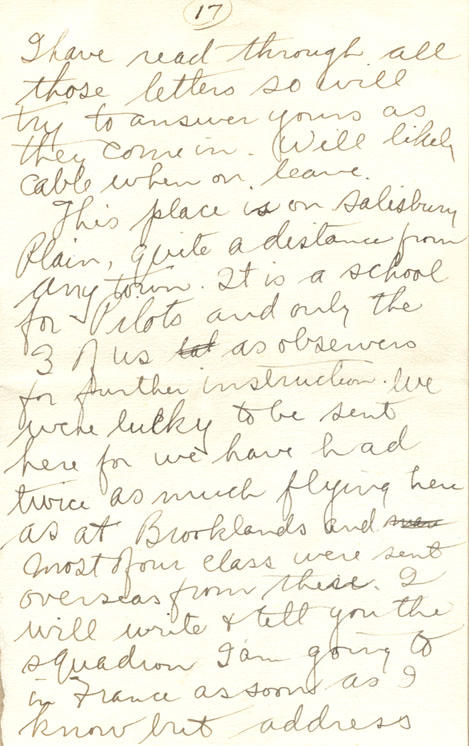 17
I have read through all
those letters so will
try to answer yours as
they come in. Will likely
cable when on leave.
This place is on Salisbury
Plain, quite a distance from
any town. It is a school
for Pilots and only the
3 of us as observers
for further instruction. We
were lucky to be sent
here for we have had
twice as much flying here
as at Brooklands and
most of our class were sent
overseas from there. I
will write & tell you the
squadron I am going to
in France as soon as I
know but address